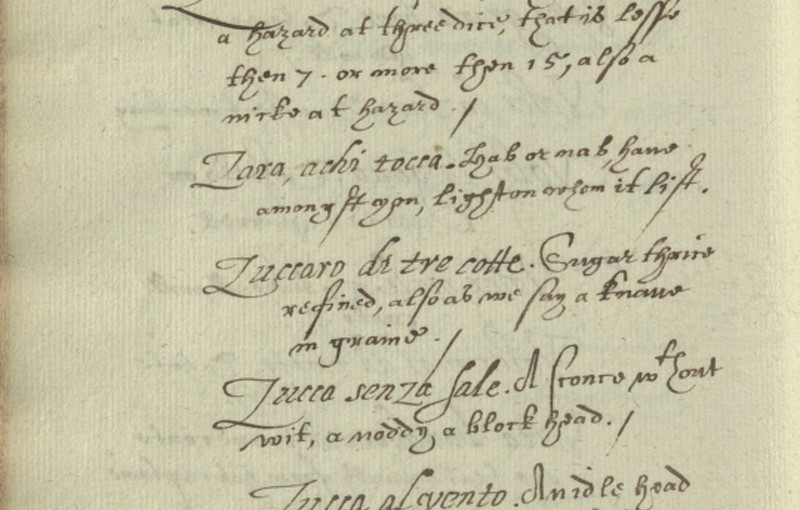 a hazard at three dice, that is lesse
then 7. or more then 15, also a
nicke at hazard. /
Zara, achi tocca. Hab or nab, haue
amongst yon, light on whom it list.
Zuccaro di tre cotte. Sugar thrice
refined, also as we say a knaue
in graine. /
Zucca senza sale. A sconce wthout
wit, a noddy, a block head. /
Zucca al vento. An idle head